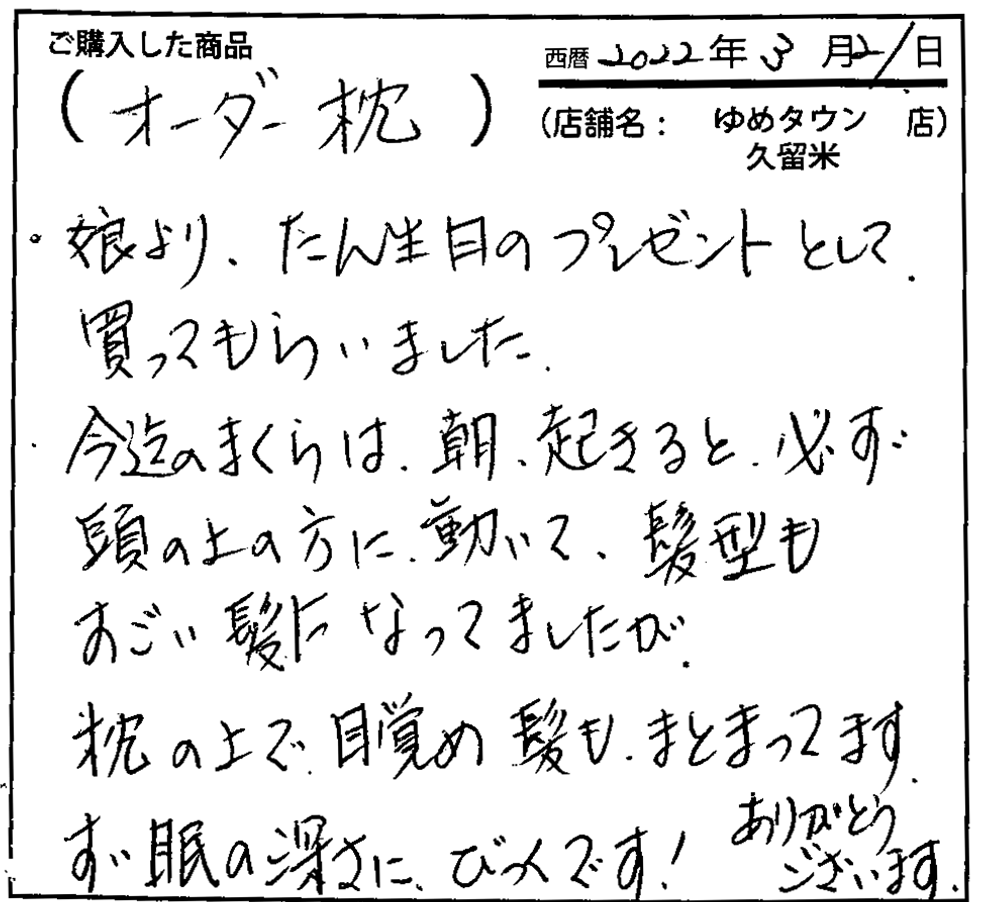 ご購入した商品
西暦 2022年3月21日
(オーダー枕)
(店舗名: ゆめタウン 店)
久留米
・娘より、たん生日のプレゼントとして、
買ってもらいました。
・今迄のまくらは、朝、起きると、必ず
頭の上の方に、動いて、髪型も
すごい髪になってましたが、
枕の上で、目覚め髪も、まとまってます。
眠の深さに、びっくです!
ありがとう
ございます。